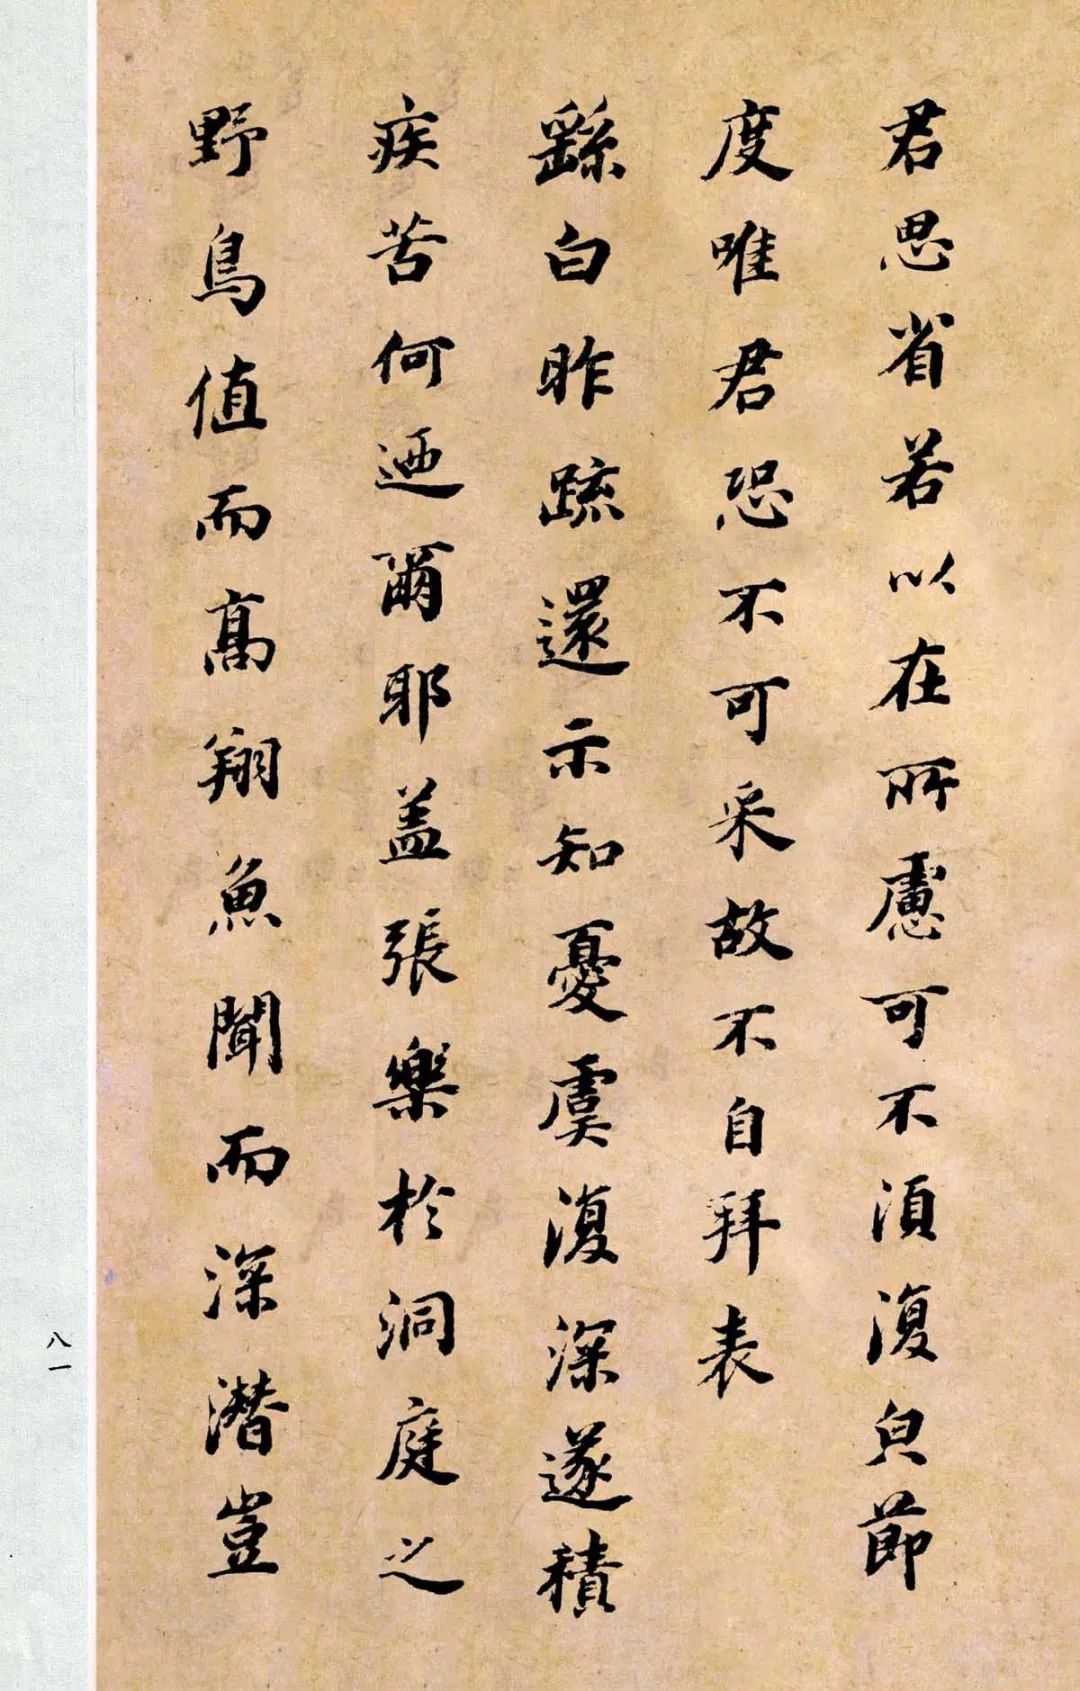 君思省若以在所慮可不須復皃節
度唯君恐不可采故不自拜表
繇白昨疏還示知憂虞復深遂積
疾苦何迺爾耶盖張樂於洞庭之
野鳥值而高翔魚聞而深潜豈
八一